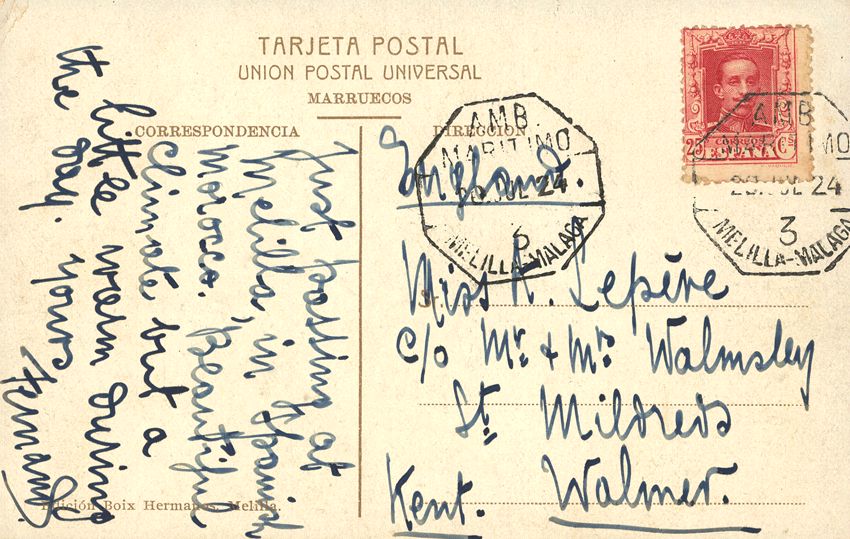 TARJETA POSTAL
UNION POSTAL UNIVERSAL
MARRUECOS
CORRESPONDENCIA
DIRECCION
Just passing at
Melilla, in Spanish
Morocco. Beautiful
climate but a
little warm during
the day. Yours
Fernand.
England.
Miss A. Lepère
c/o Mr. & Mrs Walmsley
St. Mildreds
Walmer.
Kent.
AMB.
MARITIMO
20 JUL 24
3
MELILLA-MALAGA
25 Cs
ESPAÑA
AMB.
MARITIMO
JUL 24
3
MELILLA-MALAGA
Edición Boix Hermanos. Melilla.